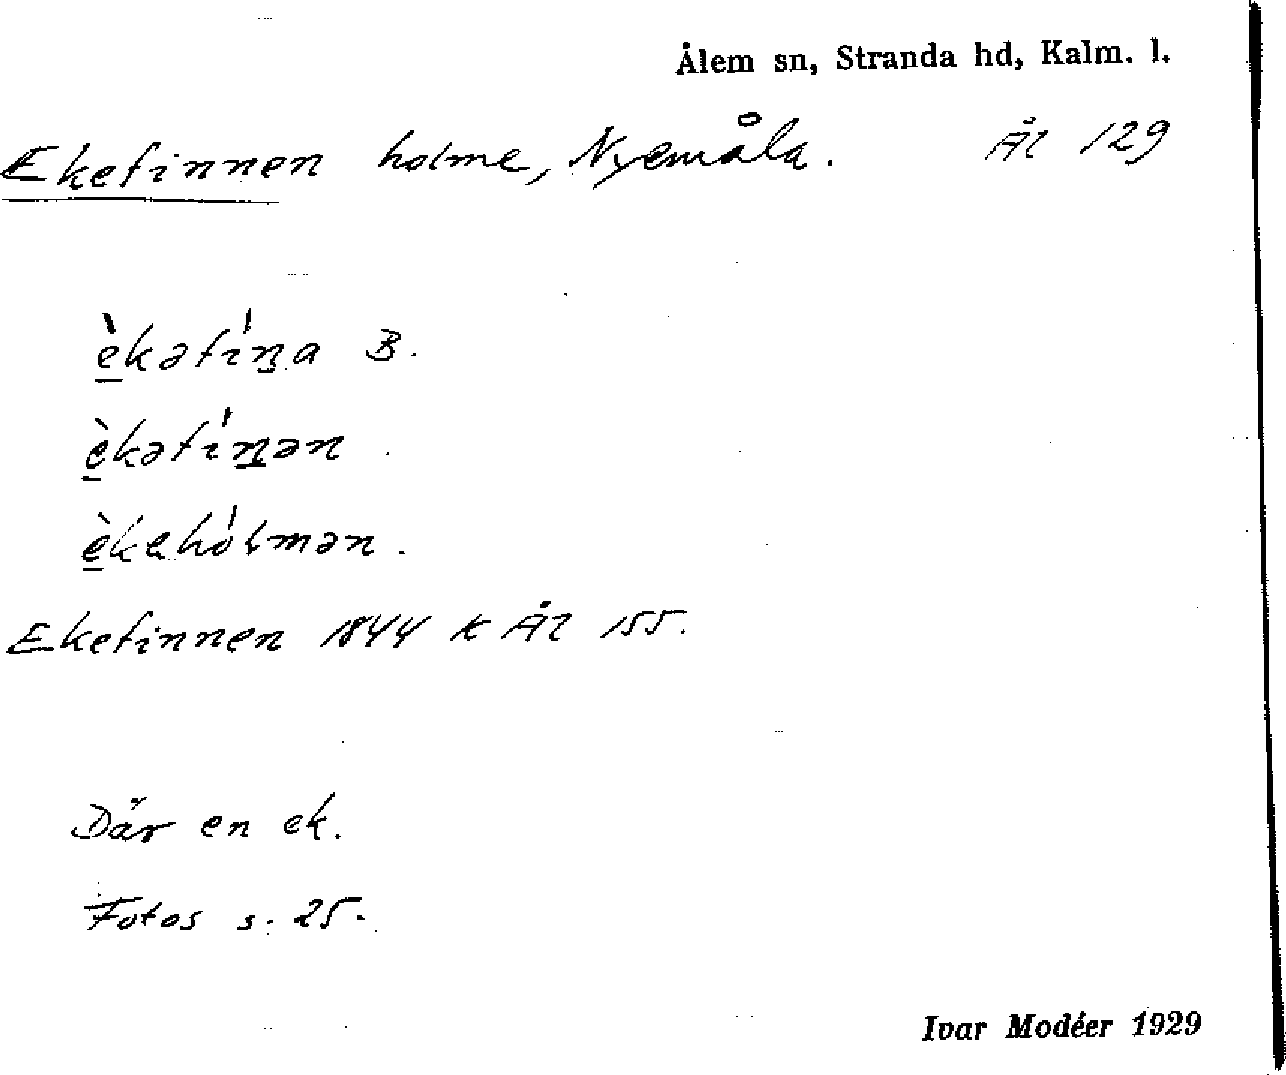 Ålem sn, Stranda hd, Kalm. l.
Ekefinnen holme, Nyemåla. Ål 129
è̱kəfíṉa B.
è̱kəfíṉən.
è̱kehólmən.
Ekefinnen 1844 K Ål 155.
Där en ek.
Fotos s. 25.
Ivar Modéer 1929